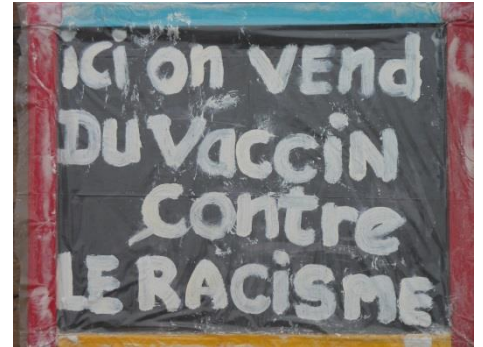 ici on VENd
DU VacciN
contre
LE RACiSME